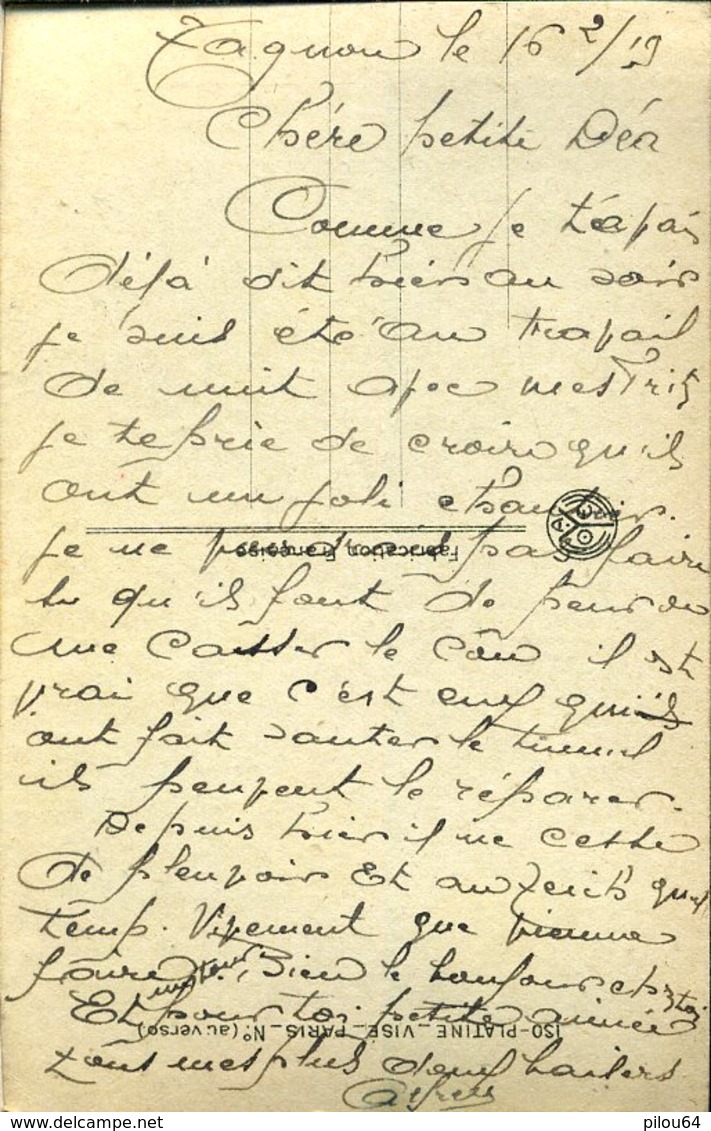 Tagnon le 16 2/19
Chère petite Déa
Comme je t'avais
déjà dit hier au soir
je suis été au travail
de nuit avec mes Fritz
je te prie de croire qu'ils
ont un joli chantier.
je ne voudrais pas faire
ce qu'ils font de peur de
me casser le cou il est
vrai que c'est eux qui
ont fait sauter le tunnel
ils peuvent le réparer.
Depuis hier il ne cesse
de pleuvoir Et aujourd'hui quel
temp. Vivement que vienne
faire un tour. Bien le bonjour chez toi
Et pour toi petite aimée
tous mes plus doux baisers
Fabrication Française
ISO-PLATINE_VISÉ_PARIS_N° (au verso)
delcampe.net
pilou64